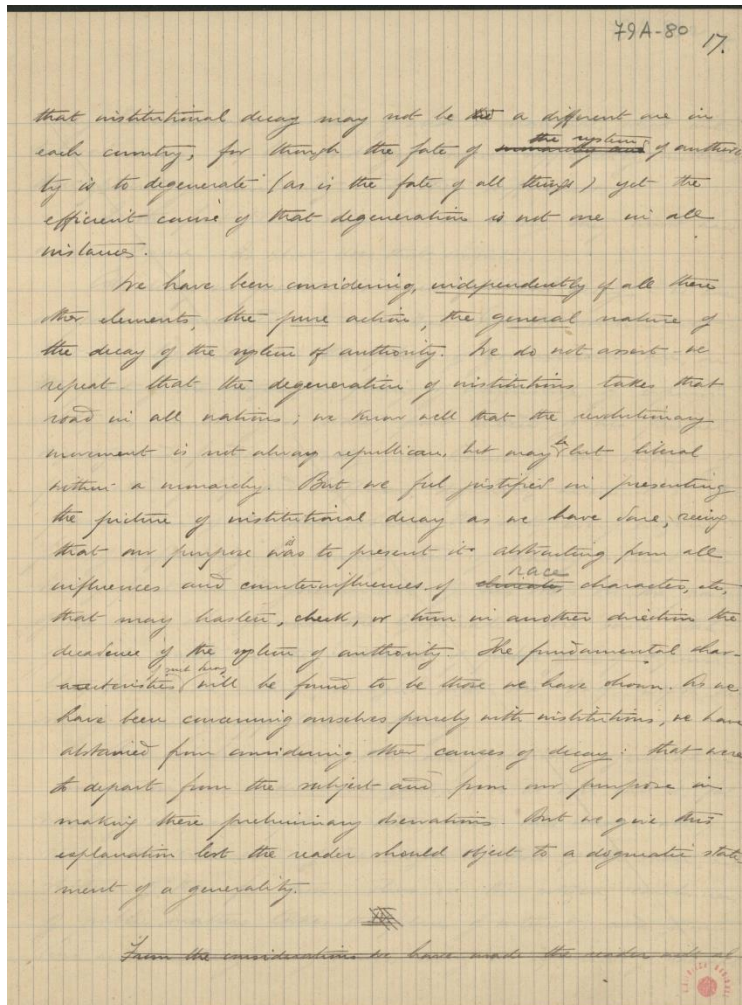 79A-80 17.
that institutional decay may not be a different one in
each country, for though the fate of monarchy and the system of authori-
ty is to degenerate (as is the fate of all things) yet the
efficient cause of that degeneration is not one in all
instances.
We have been considering, independently of all these
other elements, the pure action, the general nature of
the decay of the system of authority. We do not assert – we
repeat – that the degeneration of institutions takes that
road in all nations; we know well that the revolutionary
movement is not always republican, but may be but liberal
within a monarchy. But we feel justified in presenting
the picture of institutional decay as we have done, seeing
that our purpose was to present it abstracting from all
influences and counterinfluences of climate, race character, etc,
that may hasten, check, or turn in another direction the
decadence of the system of authority. The fundamental char-
acteristics of such decay will be found to be those we have shown. As we
have been concerning ourselves purely with institutions, we have
abstained from considering other causes of decay: that were
to depart from the subject and from our purpose in
making these preliminary observations. But we give this
explanation lest the reader should object to a dogmatic state-
ment of a generality.
From the considerations we have made the reader